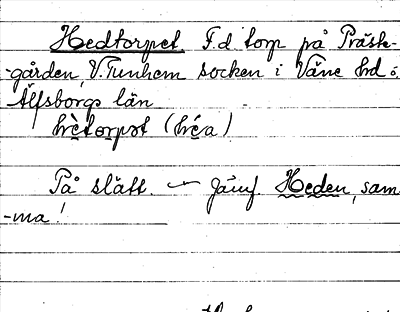 Hedtorpet F.d. torp på Präste-
-gården, V. Tunhem socken i Väne hd o.
Älfsborgs län
På slätt. — Jämf Heden, sam-
-ma!